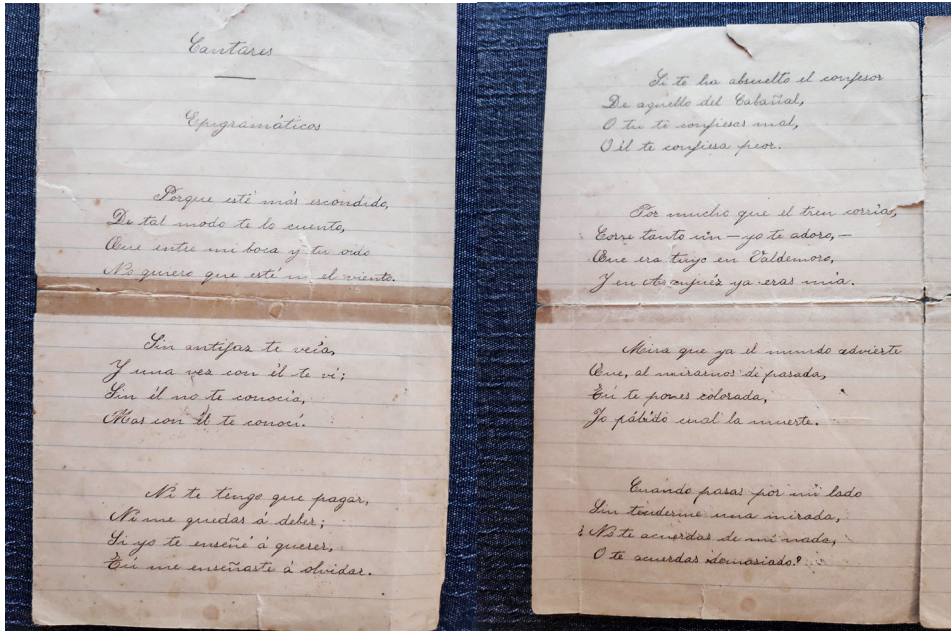 Cantares
Epigramáticos
Porque esté más escondido,
De tal modo te lo cuento,
Que entre mi boca y tu oido
No quiero que esté ni el viento.
Sin antifaz te veía,
Y una vez con él te ví;
Sin él no te conocía,
Mas con él te conocí.
Ni te tengo que pagar,
Ni me quedas á deber;
Si yo te enseñé á querer,
Tú me enseñaste á olvidar.
Si te ha absuelto el confesor
De aquello del Cabañal,
O tu te confiesas mal,
O él te confiesa peor.
Por mucho que el tren corría,
Corre tanto un — yo te adoro, —
Que era tuyo en Valdemoro,
Y en Aranjuéz ya eras mía.
Mira que ya el mundo advierte
Que, al mirarnos de pasada,
Tú te pones colorada,
Yo pálido cual la muerte.
Cuándo pasas por mi lado
Sin tenderme una mirada,
¿No te acuerdas de mi nada,
O te acuerdas demasiado?